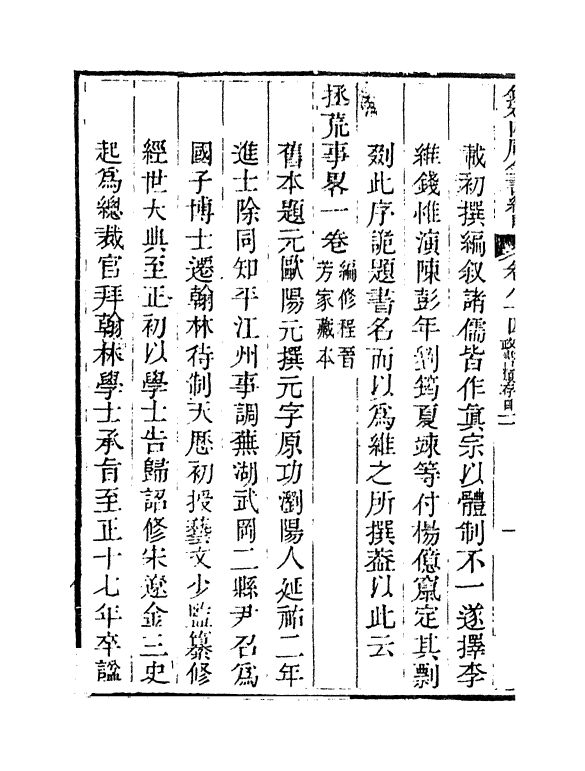 欽定四庫全書總目 卷八十四 政書類存目二 一
載初撰編叙諸儒皆作眞宗以體制不一遂擇李
維錢惟演陳彭年劉筠夏竦等付楊億竄定其剽
剟此序詭題書名而以爲維之所撰葢以此云
拯荒事畧一卷 編修程晉芳家藏本
舊本題元歐陽元撰元字原功瀏陽人延祐二年
進士除同知平江州事調蕪湖武岡二縣尹召爲
國子博士遷翰林待制天厯初授藝文少監纂修
經世大典至正初以學士告歸詔修宋遼金三史
起爲總裁官拜翰林學士承旨至正十七年卒諡